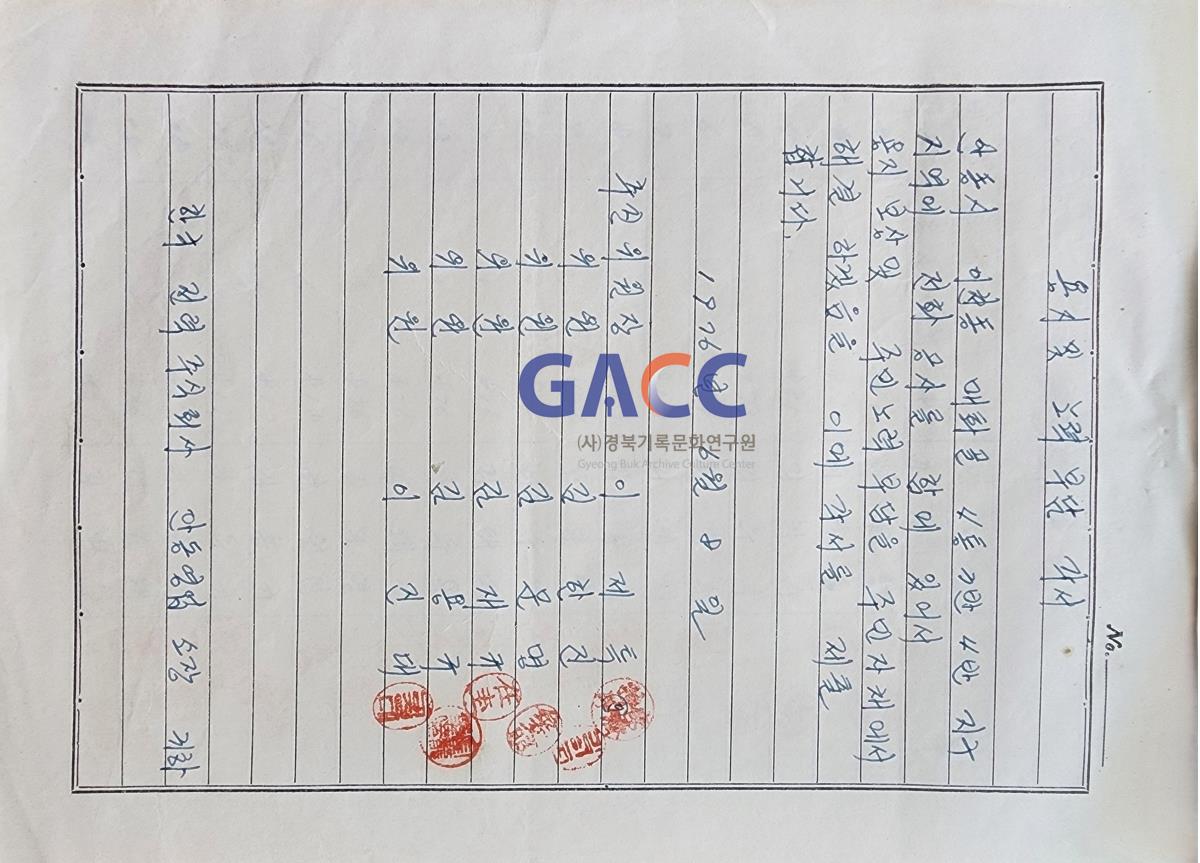 No.
용지 및 노력 부담 각서
안동시 이천동 매화골 4통 3반 4반 지구
지역에 전화 공사를 함에 있어서
용지 보상 및 주민 노력 부담을 주민 자체에서
해결 하겠음을 이에 각서를 제출
합니다.
1976년 6월 8일
추진위원장 이 제
위원 김 한 진
위원 김 문 명
위원 김 재 규
위원 김 용 규
위원 이 진 대
한국 전력 주식회사 안동영업소장 귀하
GACC
(사)경북기록문화연구원
Gyeong Buk Archive Culture Center